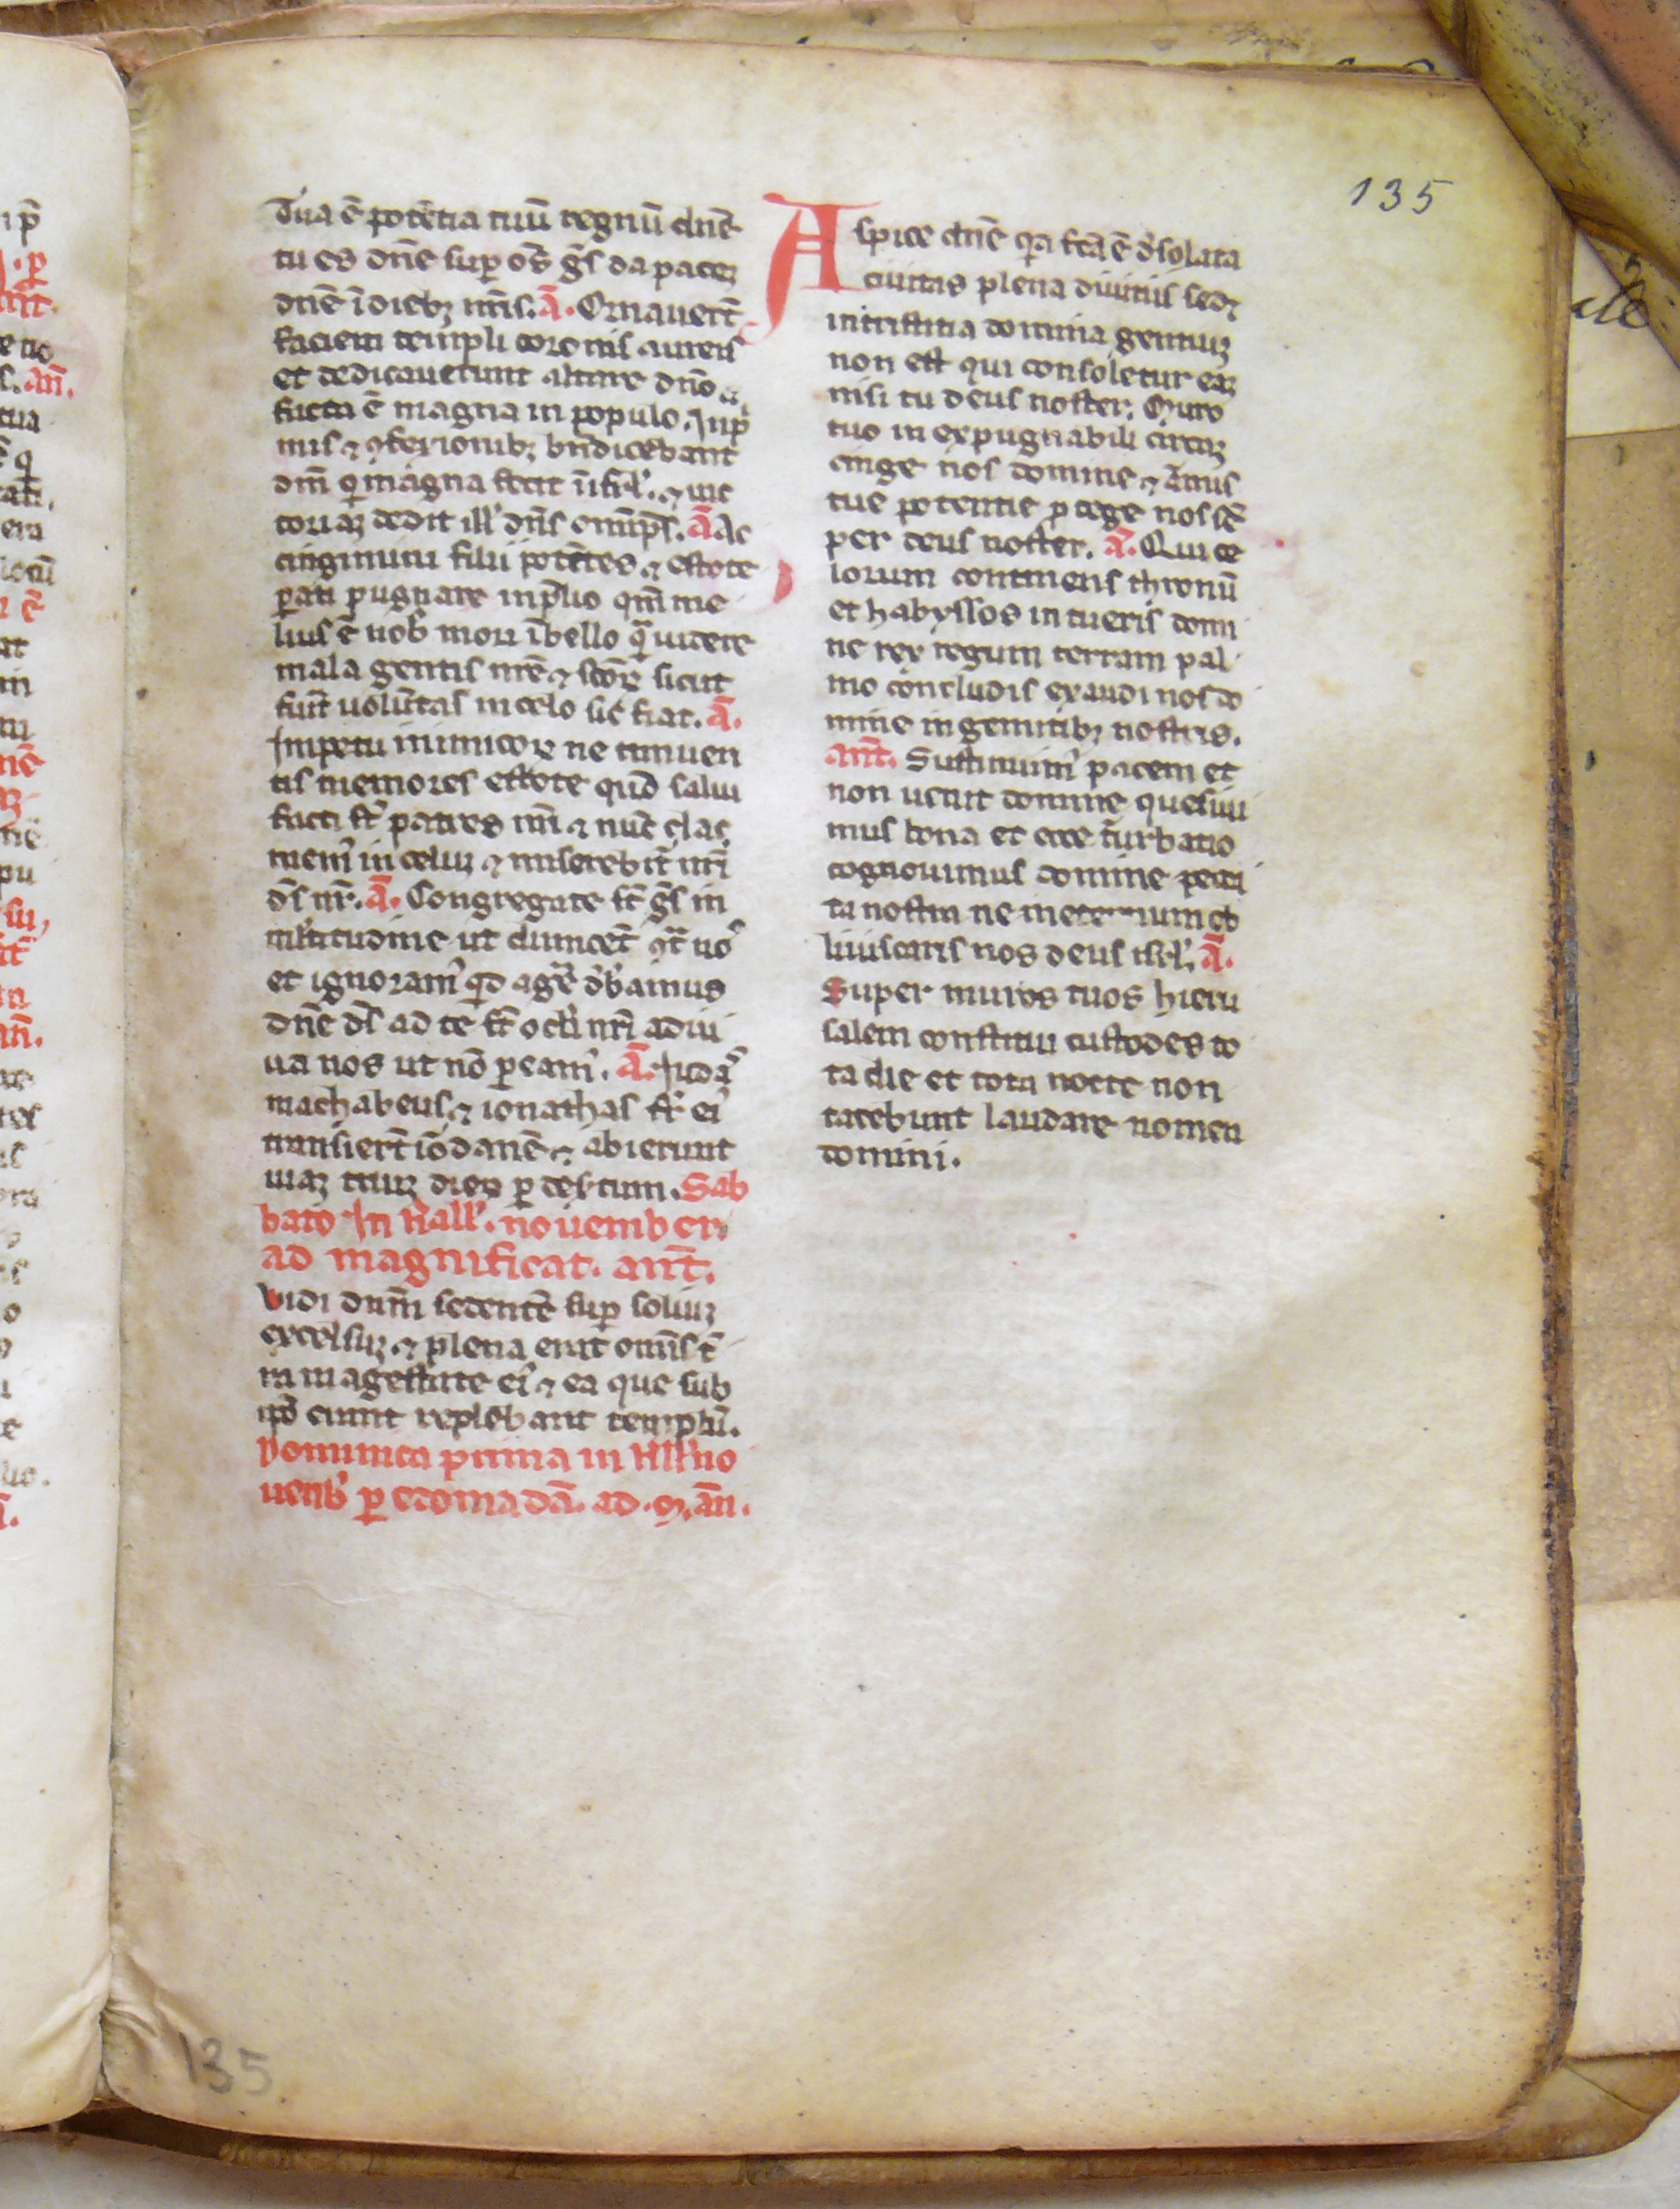 135
Tua ē potētia tuū regnū dnē
tu es dn̄e sup os̄ gs̄ da paceꝫ
dn̄e ī diebꝫ nr̄is. ā. Ornauer̄t
faciem templi coronis aureis
et dedicauerunt altare dn̄o
facta ē magna in populo. ā Inp̄
mis ⁊ ꝯfexionibꝫ bn̄dicebant
dn̄m q magna fecit ī isrl'. ⁊ uic
toriaꝫ dedit ill' dn̄s om̄ps̄. ā Ac
cingimini filii potētes ⁊ estote
ꝑati pugnare in plio qm̄ me
lius ē nob mori ī bello q̄ uidere
mala gentis nr̄e ⁊ scōꝝ sicut
fuīt uolūtas in celo sic fiat. ā.
Impetū inimicoꝝ ne timueri
tis memores estote quō salui
facti st̄ patres nr̄i ⁊ nūc clac
mem' in celuꝫ ⁊ miserebīt nr̄i
ds̄ nr̄. ā. Congregate st̄ gs̄ in
ml̄titudine ut dimicēt ꝯt̄ nos
et ignoram' qd ager̄e dbamus
dn̄e ds̄ ad te st̄ ocl'i nr̄i adiu
ua nos ut nō peam'. ā. Iudas
machabeus ⁊ ionathas fr̄ ei'
transier̄t iordanē ⁊ abierunt
uiaꝫ triuꝫ dieꝝ ꝑ desertum. Sab
bato In kall'. nouembeꝝ
ad magnificat. ant̄.
Vidi dnm̄ sedentē sup soliuꝫ
excelsuꝫ. ⁊ plena erat om̄is t̄
ra magestate ei' ⁊ ea que sub
ipo erant replebant templū.
Dominica prima in kll' no
uenb' ꝑ edomadā. ad. m. ān.
Aspice dn̄e qa fcā ē dsolata
ciuitas plena diuitiis sedꝫ
in tristitia domina gentiuꝫ
non est qui consoletur eaꝫ
nisi tu deus noster. Muro
tuo in expugnabili circuꝫ
cinge nos domine ⁊ armis
tue potentie ptege nos sē
per deus noster. ā. Qui ce
lorum contines thronū
et habyssos in tueris domi
ne rex regum terram pal
mo concludis exaudi nos do
mine in gemitibꝫ nostris.
ant̄. Sustinuim' pacem et
non uenit domine quesiui
mus bona et ecce turbatio
cognouimus domine pecca
ta nostra ne in eternum ob
liuiscaris nos deus isrl'. ā.
Super muros tuos hieru
salem constitui custodes to
ta die et tota nocte non
tacebunt laudare nomen
domini.
135